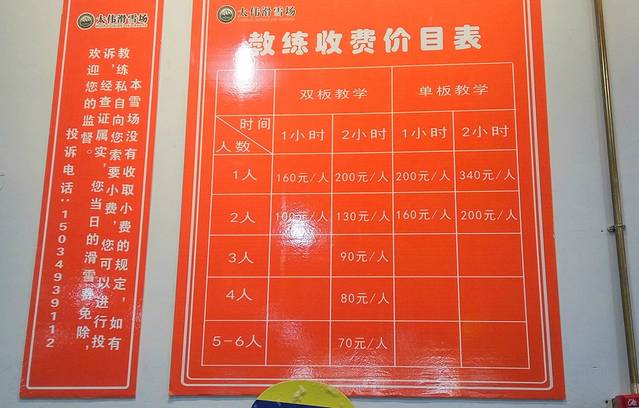 太伟滑雪场
本雪场没有收取小费的规定，如有
教练私自向您索要小费，您可以进行投
诉，经查证属实，您当日的滑雪费免除，
欢迎您的监督。
投诉电话：15034939112
太伟滑雪场
教练收费价目表
双板教学 单板教学
时间 人数 1小时 2小时 1小时 2小时
1人 160元/人 200元/人 200元/人 340元/人
2人 100元/人 130元/人 160元/人 200元/人
3人 90元/人
4人 80元/人
5-6人 70元/人